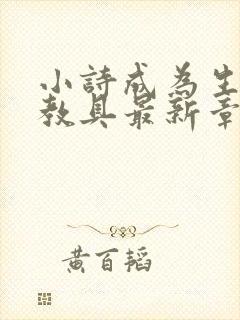 小詩成為生
教具最新章
黃百韜